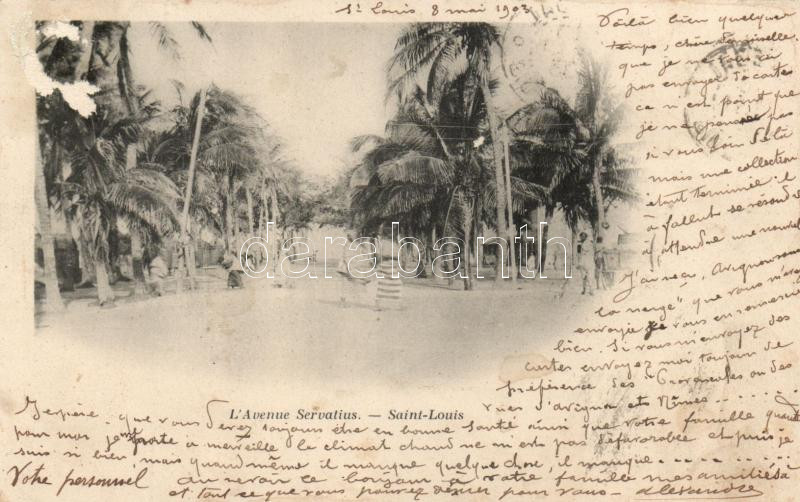 St Louis 8 mai 1903
Voilà bien quelque
temps, chère Demoiselle
que je ne vous ai
pas envoyé de cartes
ce n'est point que
je ne pense pas
si vous loin de là
mais une collection
étant terminée il
a fallut se résoudre
à attendre une nouvelle
J'ai reçu, Avignon sous
la neige" que vous m'avez
envoyée je vous en remercie
bien. Si vous m'envoyez des
cartes envoyez moi toujours de
préférence des "Provençales ou des
vues d'Avignon et Nîmes
darabanth.com
L'Avenue Servatius. — Saint-Louis
J'espère que vous devez toujours être en bonne santé ainsi que votre famille quant
pour moi je me porte à merveille le climat chaud ne m'est pas défavorable et puis je
suis si bien, mais quand même il manque quelque chose, il manque
Votre personnel au revoir le bonjour à votre famille mes amitiés à
et tout ce que vous pouvez désirer pour vous